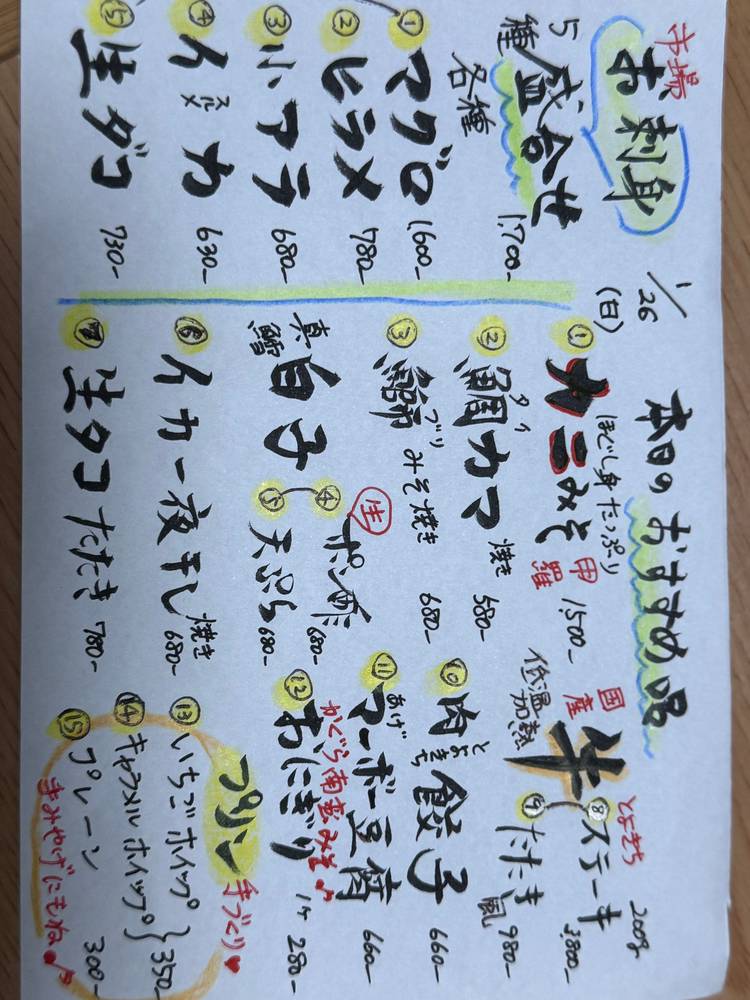 1/26
(日)
本日のおすすめ品
市場
お刺身
5種盛合せ 1,700-
各種
① マグロ 1,600-
② ヒラメ 780-
③ 小アラ 680-
④ スルメ イカ 630-
⑤ 生ダコ 730-
① カニみそ 甲羅 1,500-
ほぐし身たっぷり
② 鯛カマ 焼き 580-
タイ
③ 鰤 みそ焼き 680-
ブリ
真鱈 白子
④ 生 ポン酢 680-
⑤ 天ぷら 680-
⑥ イカ一夜干し 焼き 680-
⑦ 生タコたたき 780-
国産 牛 とよきち
低温加熱
⑧ ステーキ 200g
⑨ たたき風 980-
⑩ 肉餃子 660-
とよきち
⑪ マーボー豆腐 660-
あげ
かぐら南蛮みそ♪
⑫ おにぎり 1ケ 280-
プリン 手づくり♥
⑬ いちごホイップ
⑭ キャラメルホイップ } 350-
⑮ プレーン 300-
きみやげにもね♪